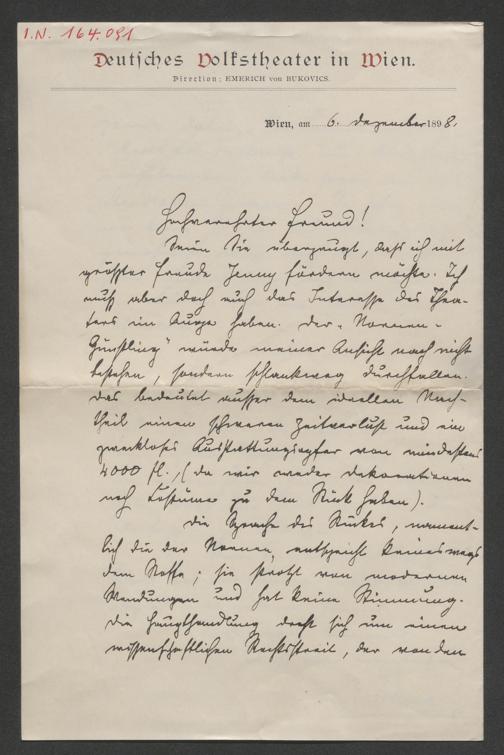 I.N. 164.091
Deutsches Volkstheater in Wien.
Direction: EMERICH von BUKOVICS.
Wien, am 6. Dezember 1898.
Hochverehrter Freund!
Seien Sie überzeugt, daß ich mit
größter Freude Jenny fördern möchte. Ich
muß aber doch auch das Interesse des Thea-
ters im Auge haben. Der „Nornen-
Günstling" würde meiner Ansicht nach nicht
bestehen, sondern schlankweg durchfallen.
Das bedeutet ausser dem ideellen Nach-
theil einen schweren Zeitverlust und ein
zweckloses Ausstattungsopfer von mindestens
4000 fl., (da wir weder Dekorationen
noch Costüme zu dem Stück haben).
Die Sprache des Stückes, nament-
lich die der Nornen, entspricht keineswegs
dem Stoffe; sie strotzt von modernen
Wendungen und hat keine Stimmung.
Die Haupthandlung dreht sich um einen
wissenschaftlichen Rechtsstreit, der von den